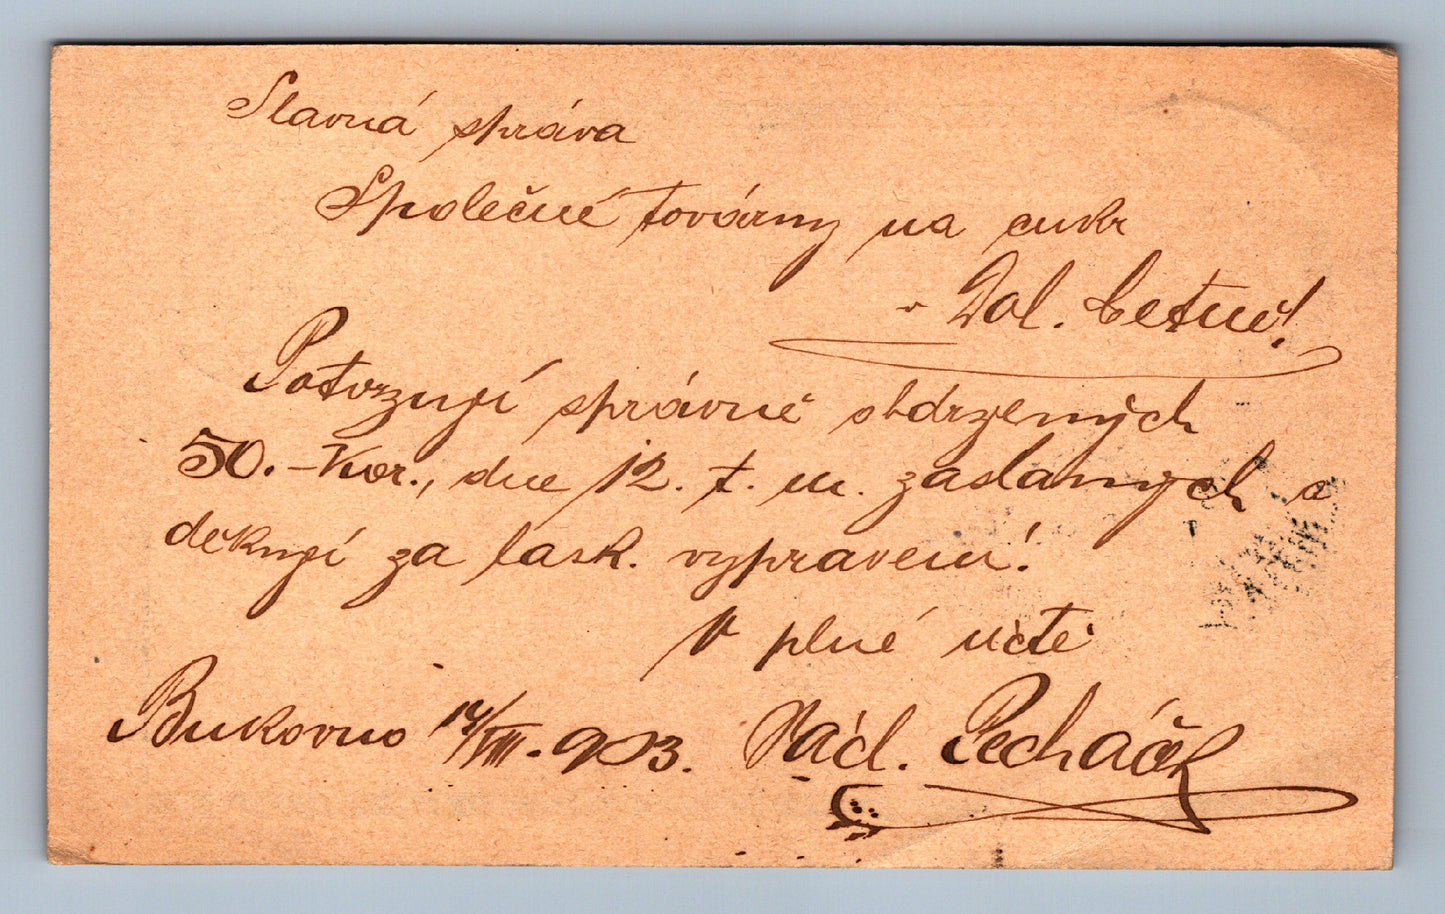 Slavná správa
Společné továrny na cukr
v Dol. Cetně!
Potvrzuji správně obdržených
50.- Kor., dne 12. t. m. zaslaných a
děkuji za lask. vypravení!
V plné úctě
Bukovno 14/VIII. 903. Vád. Pecháček